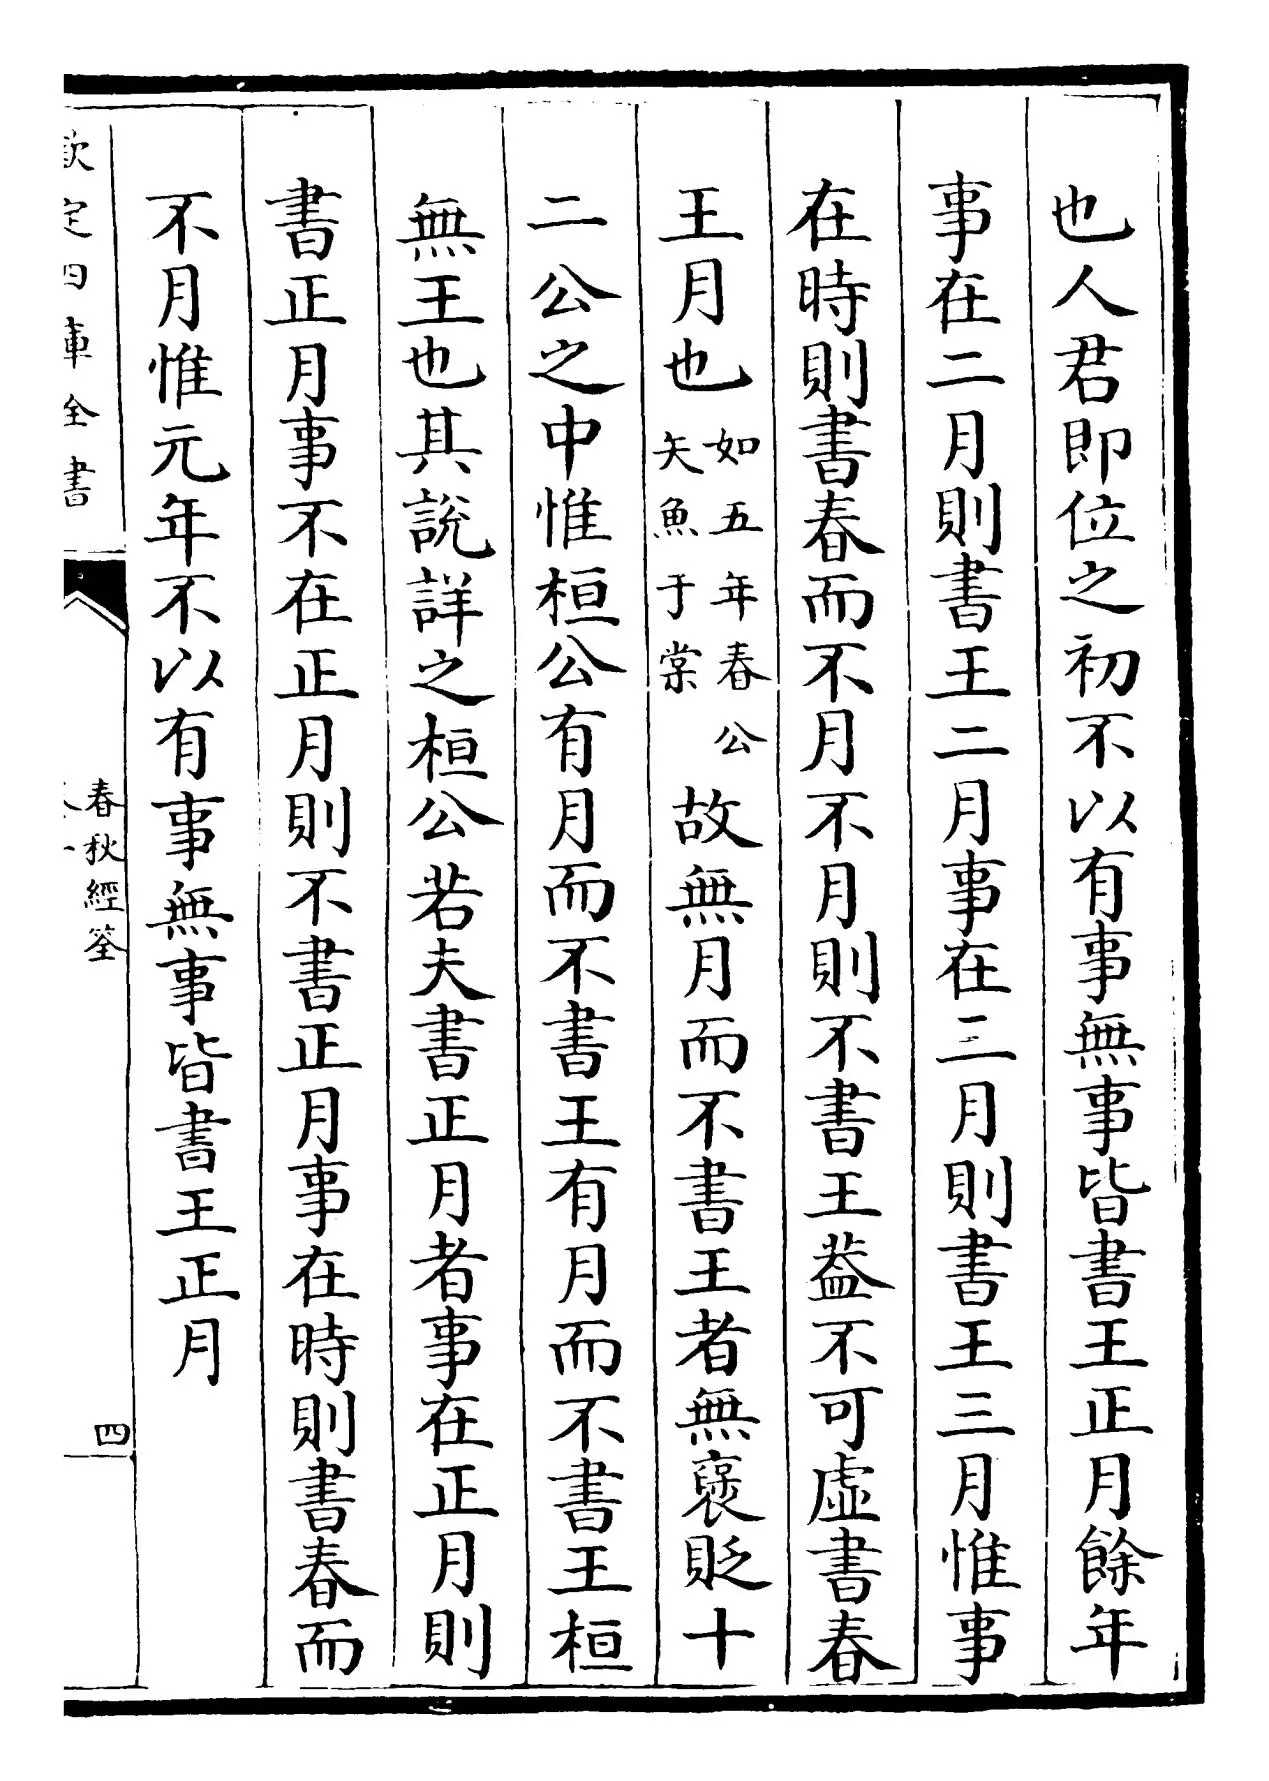 也人君即位之初不以有事無事皆書王正月餘年
事在二月則書王二月事在三月則書王三月惟事
在時則書春而不月不月則不書王葢不可虛書春
王月也如五年春公矢魚于棠故無月而不書王者無襃貶十
二公之中惟桓公有月而不書王有月而不書王桓
無王也其說詳之桓公若夫書正月者事在正月則
書正月事不在正月則不書正月事在時則書春而
不月惟元年不以有事無事皆書王正月
欽定四庫全書
春秋經筌
四